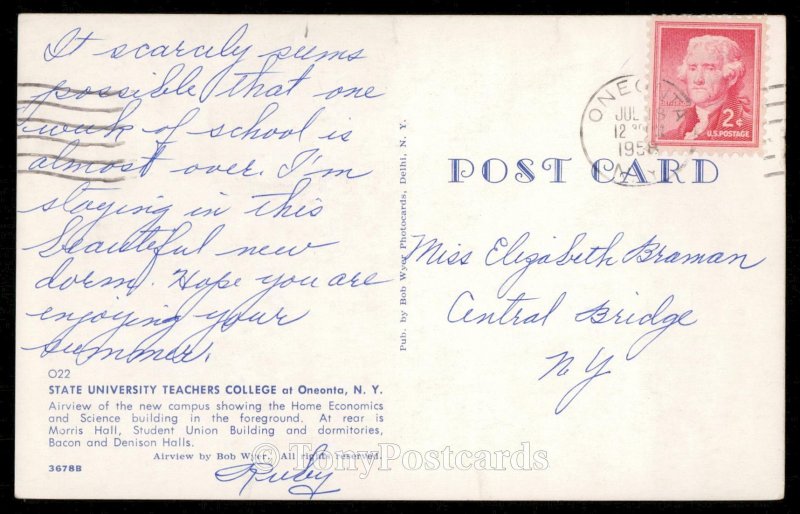 It scarcely seems
possible that one
week of school is
almost over. I'm
staying in this
beautiful new
dorm. Hope you are
enjoying your
summer.
O22
STATE UNIVERSITY TEACHERS COLLEGE at Oneonta, N. Y.
Airview of the new campus showing the Home Economics
and Science building in the foreground. At rear is
Morris Hall, Student Union Building and dormitories,
Bacon and Denison Halls.
Airview by Bob Wyer. All rights reserved.
3678B
Ruby
© TonyPostcards
Pub. by Bob Wyer Photocards, Delhi, N. Y.
ONEONTA
JUL
12
1958
N.Y.
2¢
U.S. POSTAGE
POST CARD
Miss Elizabeth Braman
Central Bridge
N Y